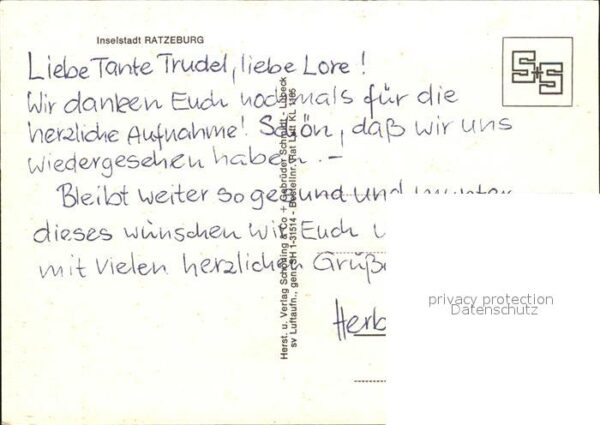 Inselstadt RATZEBURG
S+S
Liebe Tante Trudel, liebe Lore!
Wir danken Euch nochmals für die
herzliche Aufnahme! Schön, daß wir uns
wiedergesehen haben. –
Bleibt weiter so gesund und munter
dieses wünschen wir Euch
mit vielen herzlichen Grüße
Herb
Herst. u. Verlag Schöning & Co + Gebrüder Schmidt - Lübeck
sv Luftaufn., gen. SH 1-31514 - Bestellnr. Rat Luft KL 1165
privacy protection
Datenschutz